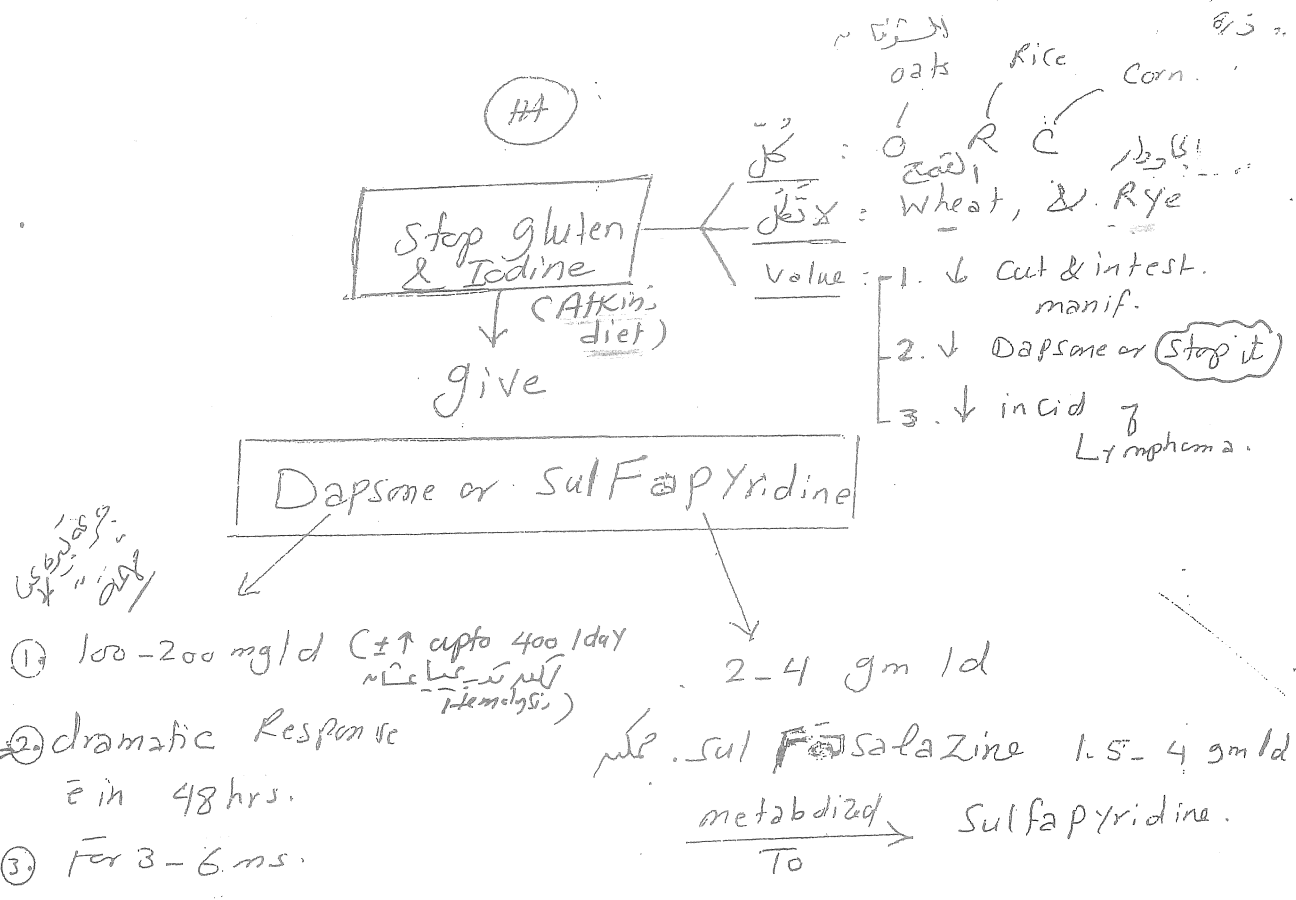 ذرة
الشوفان
oats Rice Corn.
##
كُلّ : O R C
القمح
لا تأكل : Wheat, & Rye
Stop gluten
& Iodine
(Atkin's
diet)
Value : 1. ↓ Cut & intest.
manif.
2. ↓ Dapsone or Stop it
3. ↓ incid of
Lymphoma.
give
Dapsone or Sulfapyridine
① 100-200 mg/d (±↑ upto 400/day
Hemolysis)
② dramatic Response
c̄ in 48 hrs.
③ For 3-6 ms.
2-4 gm/d
ممكن . Sulfasalazine 1.5-4 gm/d
metabolized
To
Sulfapyridine.